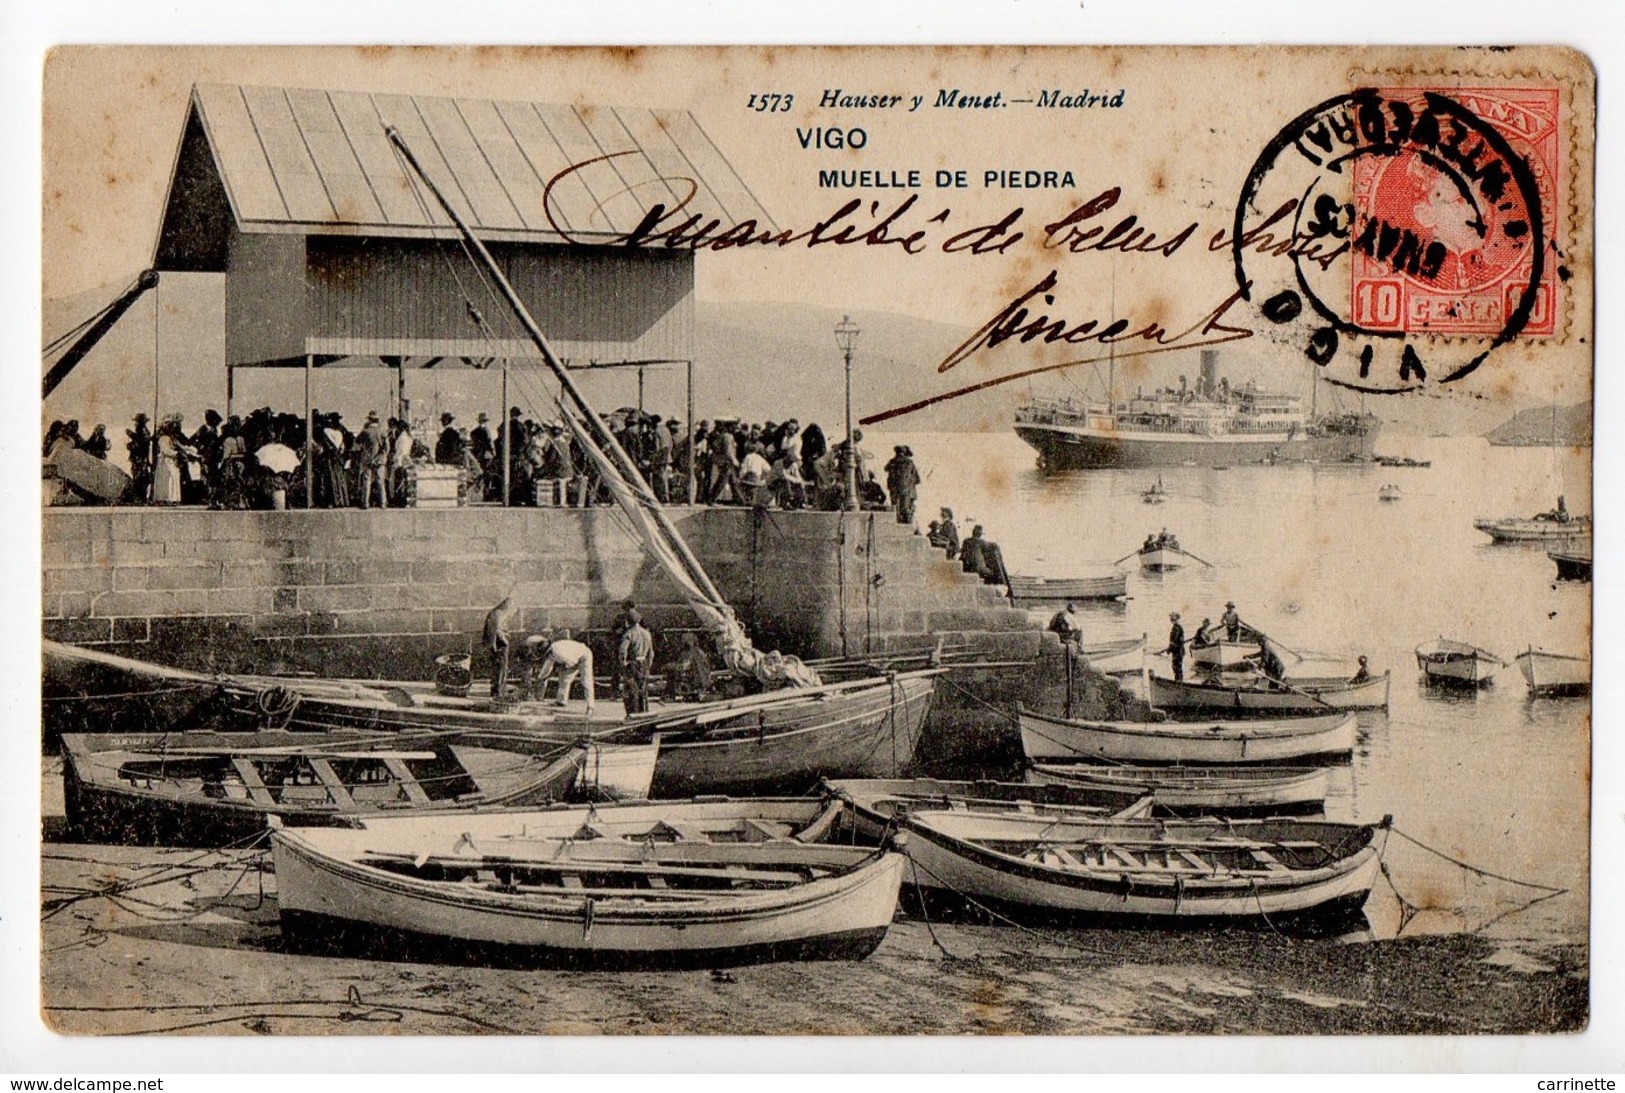 1573 Hauser y Menet.—Madrid
VIGO
MUELLE DE PIEDRA
Quantité de belles choses
Vincent
10 CENT. 10
VIGO
(PONTEVEDRA)
6 MAY 05
www.delcampe.net
carrinette